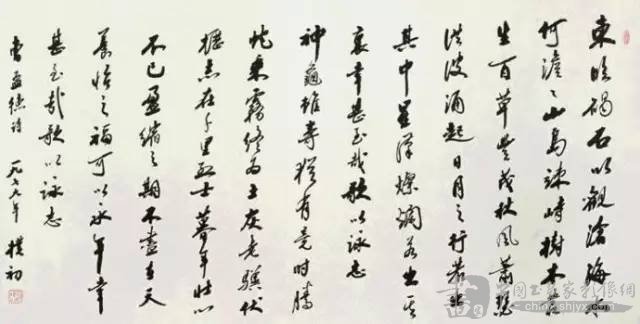 東臨碣石以觀滄海水
何澹〻山島竦峙樹木叢
生百草豐茂秋風蕭瑟
洪波涌起日月之行若出
其中星漢燦爛若出其
裏幸甚至哉歌以詠志
神龜雖壽猶有竟時騰
蛇乘霧終為土灰老驥伏
櫪志在千里烈士暮年壯心
不已盈縮之期不盡在天
養怡之福可以永年幸
甚至哉歌以詠志
曹孟德詩 一九七七年 樸初